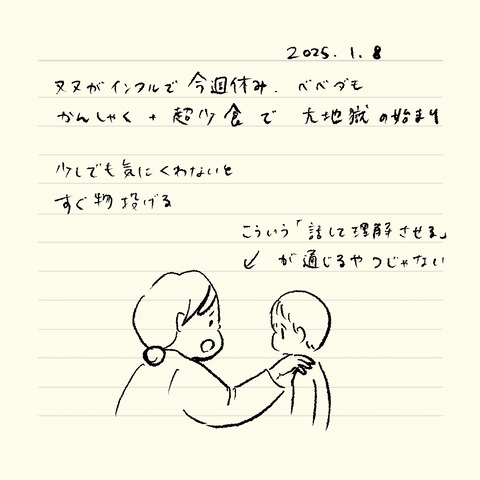 2025.1.8
ヌヌがインフルで今週休み. べべづも
かんしゃく + 超少食で 大地獄の始まり
少しでも気にくわないと
すぐ物投げる
こういう「話して理解させる」
↙ が通じるやつじゃない